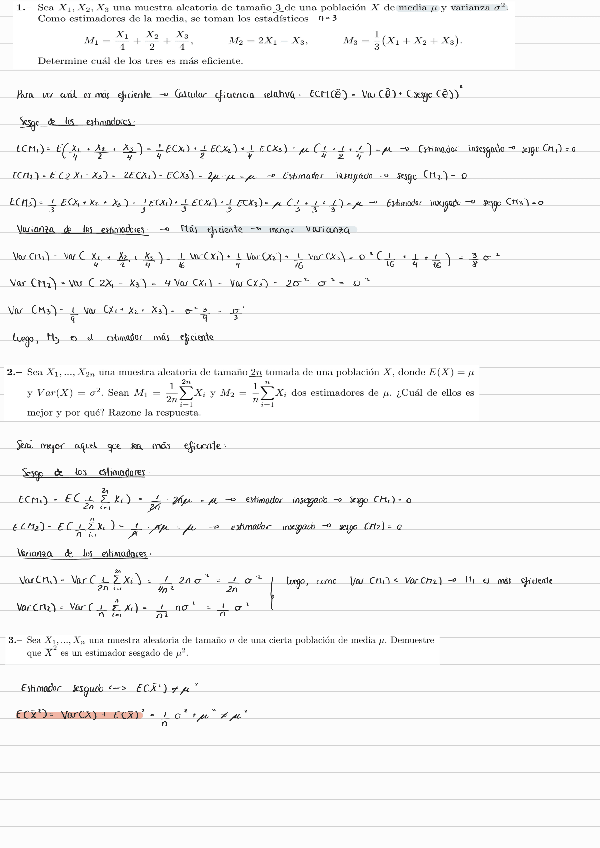 1. Sea X₁, X₂, X₃ una muestra aleatoria de tamaño 3 de una población X de media μ y varianza σ².
Como estimadores de la media, se toman los estadísticos n=3
M₁ = X₁/4 + X₂/2 + X₃/4, M₂ = 2X₁ − X₃, M₃ = 1/3 (X₁ + X₂ + X₃).
Determine cuál de los tres es más eficiente.
Para ver cuál es más eficiente → Calcular eficiencia relativa. ECM(ê) = Var(ê) + (sesgo(ê))²
Sesgo de los estimadores:
E(M₁) = E(X₁/4 + X₂/2 + X₃/4) = 1/4 E(X₁) + 1/2 E(X₂) + 1/4 E(X₃) = μ (1/4 + 1/2 + 1/4) = μ → Estimador insesgado → sesgo (M₁) = 0
E(M₂) = E(2X₁ - X₃) = 2E(X₁) - E(X₃) = 2μ - μ = μ → Estimador insesgado → sesgo (M₂) = 0
E(M₃) = 1/3 E(X₁ + X₂ + X₃) = 1/3 E(X₁) + 1/3 E(X₂) + 1/3 E(X₃) = μ (1/3 + 1/3 + 1/3) = μ → Estimador insesgado → sesgo (M₃) = 0
Varianza de los estimadores → Más eficiente → menor varianza
Var(M₁) = Var(X₁/4 + X₂/2 + X₃/4) = 1/16 Var(X₁) + 1/4 Var(X₂) + 1/16 Var(X₃) = σ² (1/16 + 1/4 + 1/16) = 3/8 σ²
Var(M₂) = Var(2X₁ - X₃) = 4 Var(X₁) - Var(X₃) = 2σ² σ² =
Var(M₃) = 1/9 Var(X₁ + X₂ + X₃) = σ² 3/9 =
Luego, M₃ es el estimador más eficiente
2.– Sea X₁, ..., X₂ₙ una muestra aleatoria de tamaño 2n tomada de una población X, donde E(X) = μ
y Var(X) = σ². Sean M₁ = 1/2n ∑ᵢ₌₁²ⁿ Xᵢ y M₂ = 1/n ∑ᵢ₌₁ⁿ Xᵢ dos estimadores de μ. ¿Cuál de ellos es
mejor y por qué? Razone la respuesta.
Será mejor aquel que sea más eficiente.
Sesgo de los estimadores
E(M₁) = E(1/2n ∑ᵢ₌₁²ⁿ Xᵢ) = 1/2n · 2nμ = μ → estimador insesgado → sesgo (M₁) = 0
E(M₂) = E(1/n ∑ᵢ₌₁ⁿ Xᵢ) = 1/n · nμ = μ → estimador insesgado → sesgo (M₂) = 0
Varianza de los estimadores.
Var(M₁) = Var(1/2n ∑ᵢ₌₁²ⁿ Xᵢ) = 1/4n² 2nσ² = 1/2n σ² luego, como Var(M₁) < Var(M₂) → M₁ es más eficiente
Var(M₂) = Var(1/n ∑ᵢ₌₁ⁿ Xᵢ) = 1/n² nσ² = 1/n σ²
3.– Sea X₁, ..., Xₙ una muestra aleatoria de tamaño n de una cierta población de media μ. Demuestre
que X̄² es un estimador sesgado de μ².
Estimador sesgado <-> E(X̄²) ≠ μ²
E(X̄²) = Var(X̄) + E(X̄)² = 1/n σ² + μ² ≠ μ²